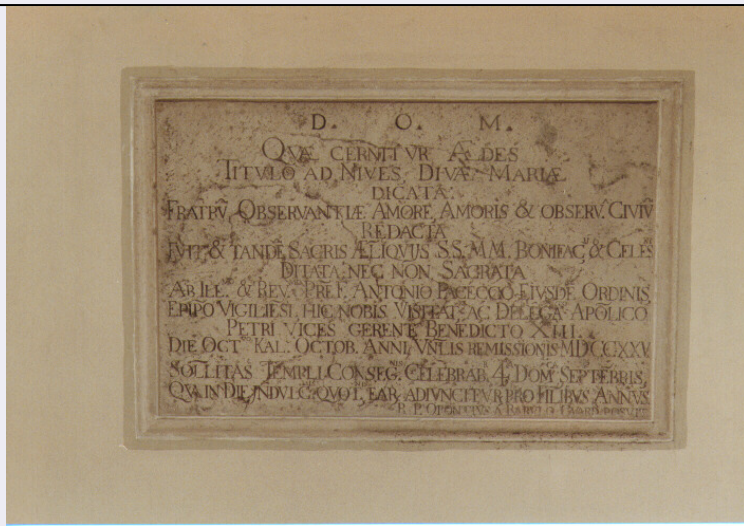 D. O. M.
QVÆ CERNITVR ÆDES
TITVLO AD NIVES DIVÆ MARIÆ
DICATA.
FRATRV̄ OBSERVANTIÆ AMORE, AMORIS & OBSERV. CIVIV̄
REDACTA
FVIT & TANDĒ SACRIS ÆLIQVIJS S.S. M.M. BONIFAC. & CELES
DITATA NEC NON SAGRATA
AB ILL. & REV. PRĒ F. ANTONIO PACECCO EIVSDĒ ORDINIS
EPIPO VIGILIESI, HIC NOBIS VISITAT. AC DELEGA. APOLICO
PETRI VICES GERENTE BENEDICTO XIII.
DIE OCT. KAL. OCTOB. ANNI VNLIS REMISSIONIS MDCCXXV
SOLLITAS TEMPLI CONSEG. CELEBRAB. 4. DOM. SEPTĒBRIS,
QVA IN DIE INDVLG. QVOT. EAR. ADIVNCITVR PRO FILIBVS ANNVS
R. P.